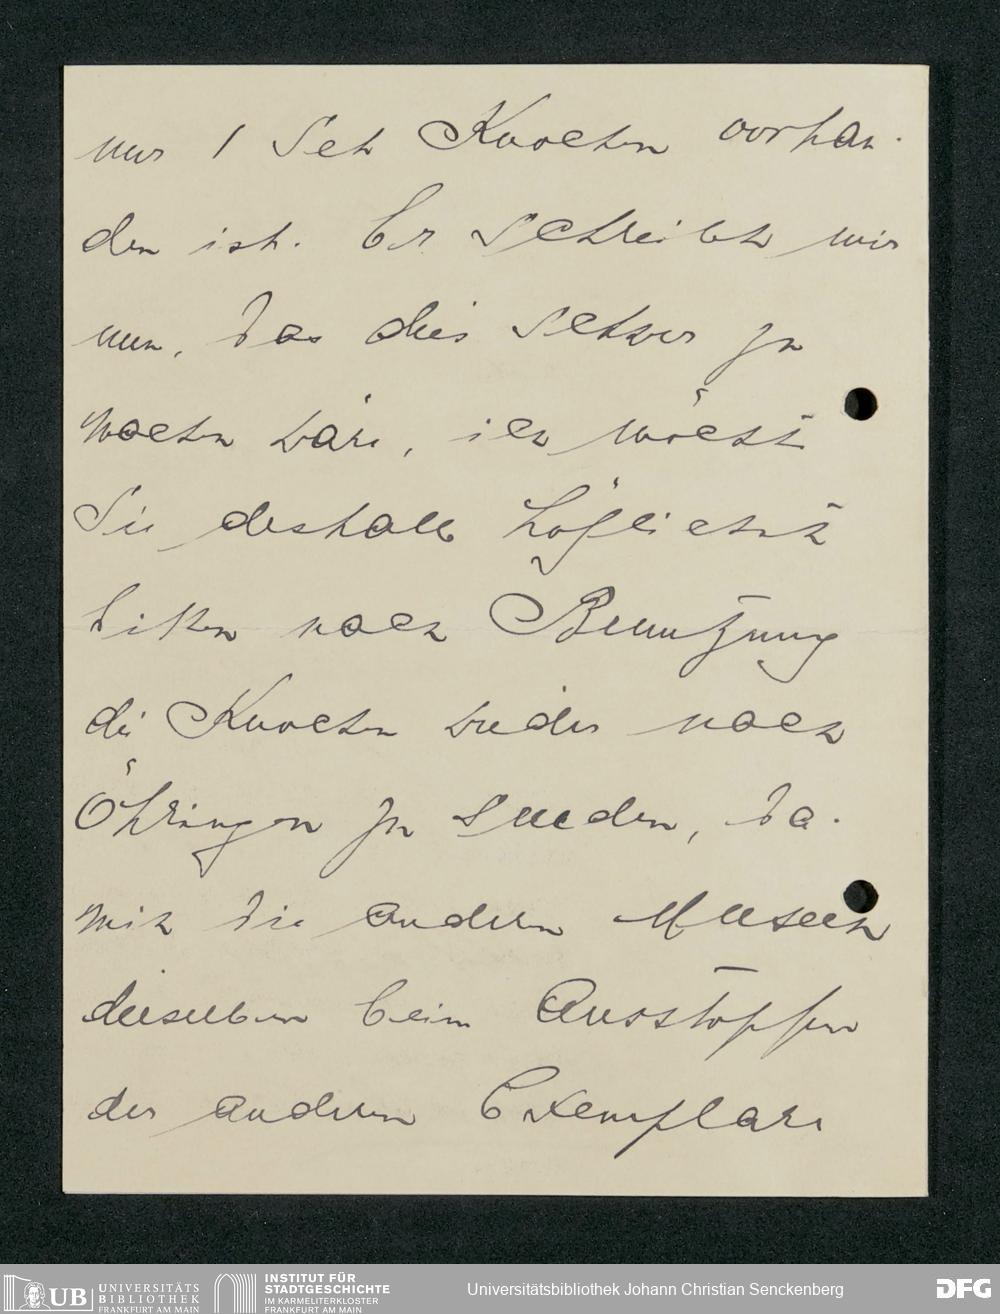 nur 1 Set Knochen vorhan-
den ist. Er schreibt mir
nun, das dies schwer zu
machen wäre, ich möcht
Sie deshalb höflichst
bitten nach Benutzung
die Knochen wieder nach
Öhringen zu senden, da-
mit die andern Museen
dieselben beim Ausstopfen
der anderen Exemplare
UB UNIVERSITÄTS
BIBLIOTHEK
FRANKFURT AM MAIN
INSTITUT FÜR
STADTGESCHICHTE
IM KARMELITERKLOSTER
FRANKFURT AM MAIN
Universitätsbibliothek Johann Christian Senckenberg
DFG